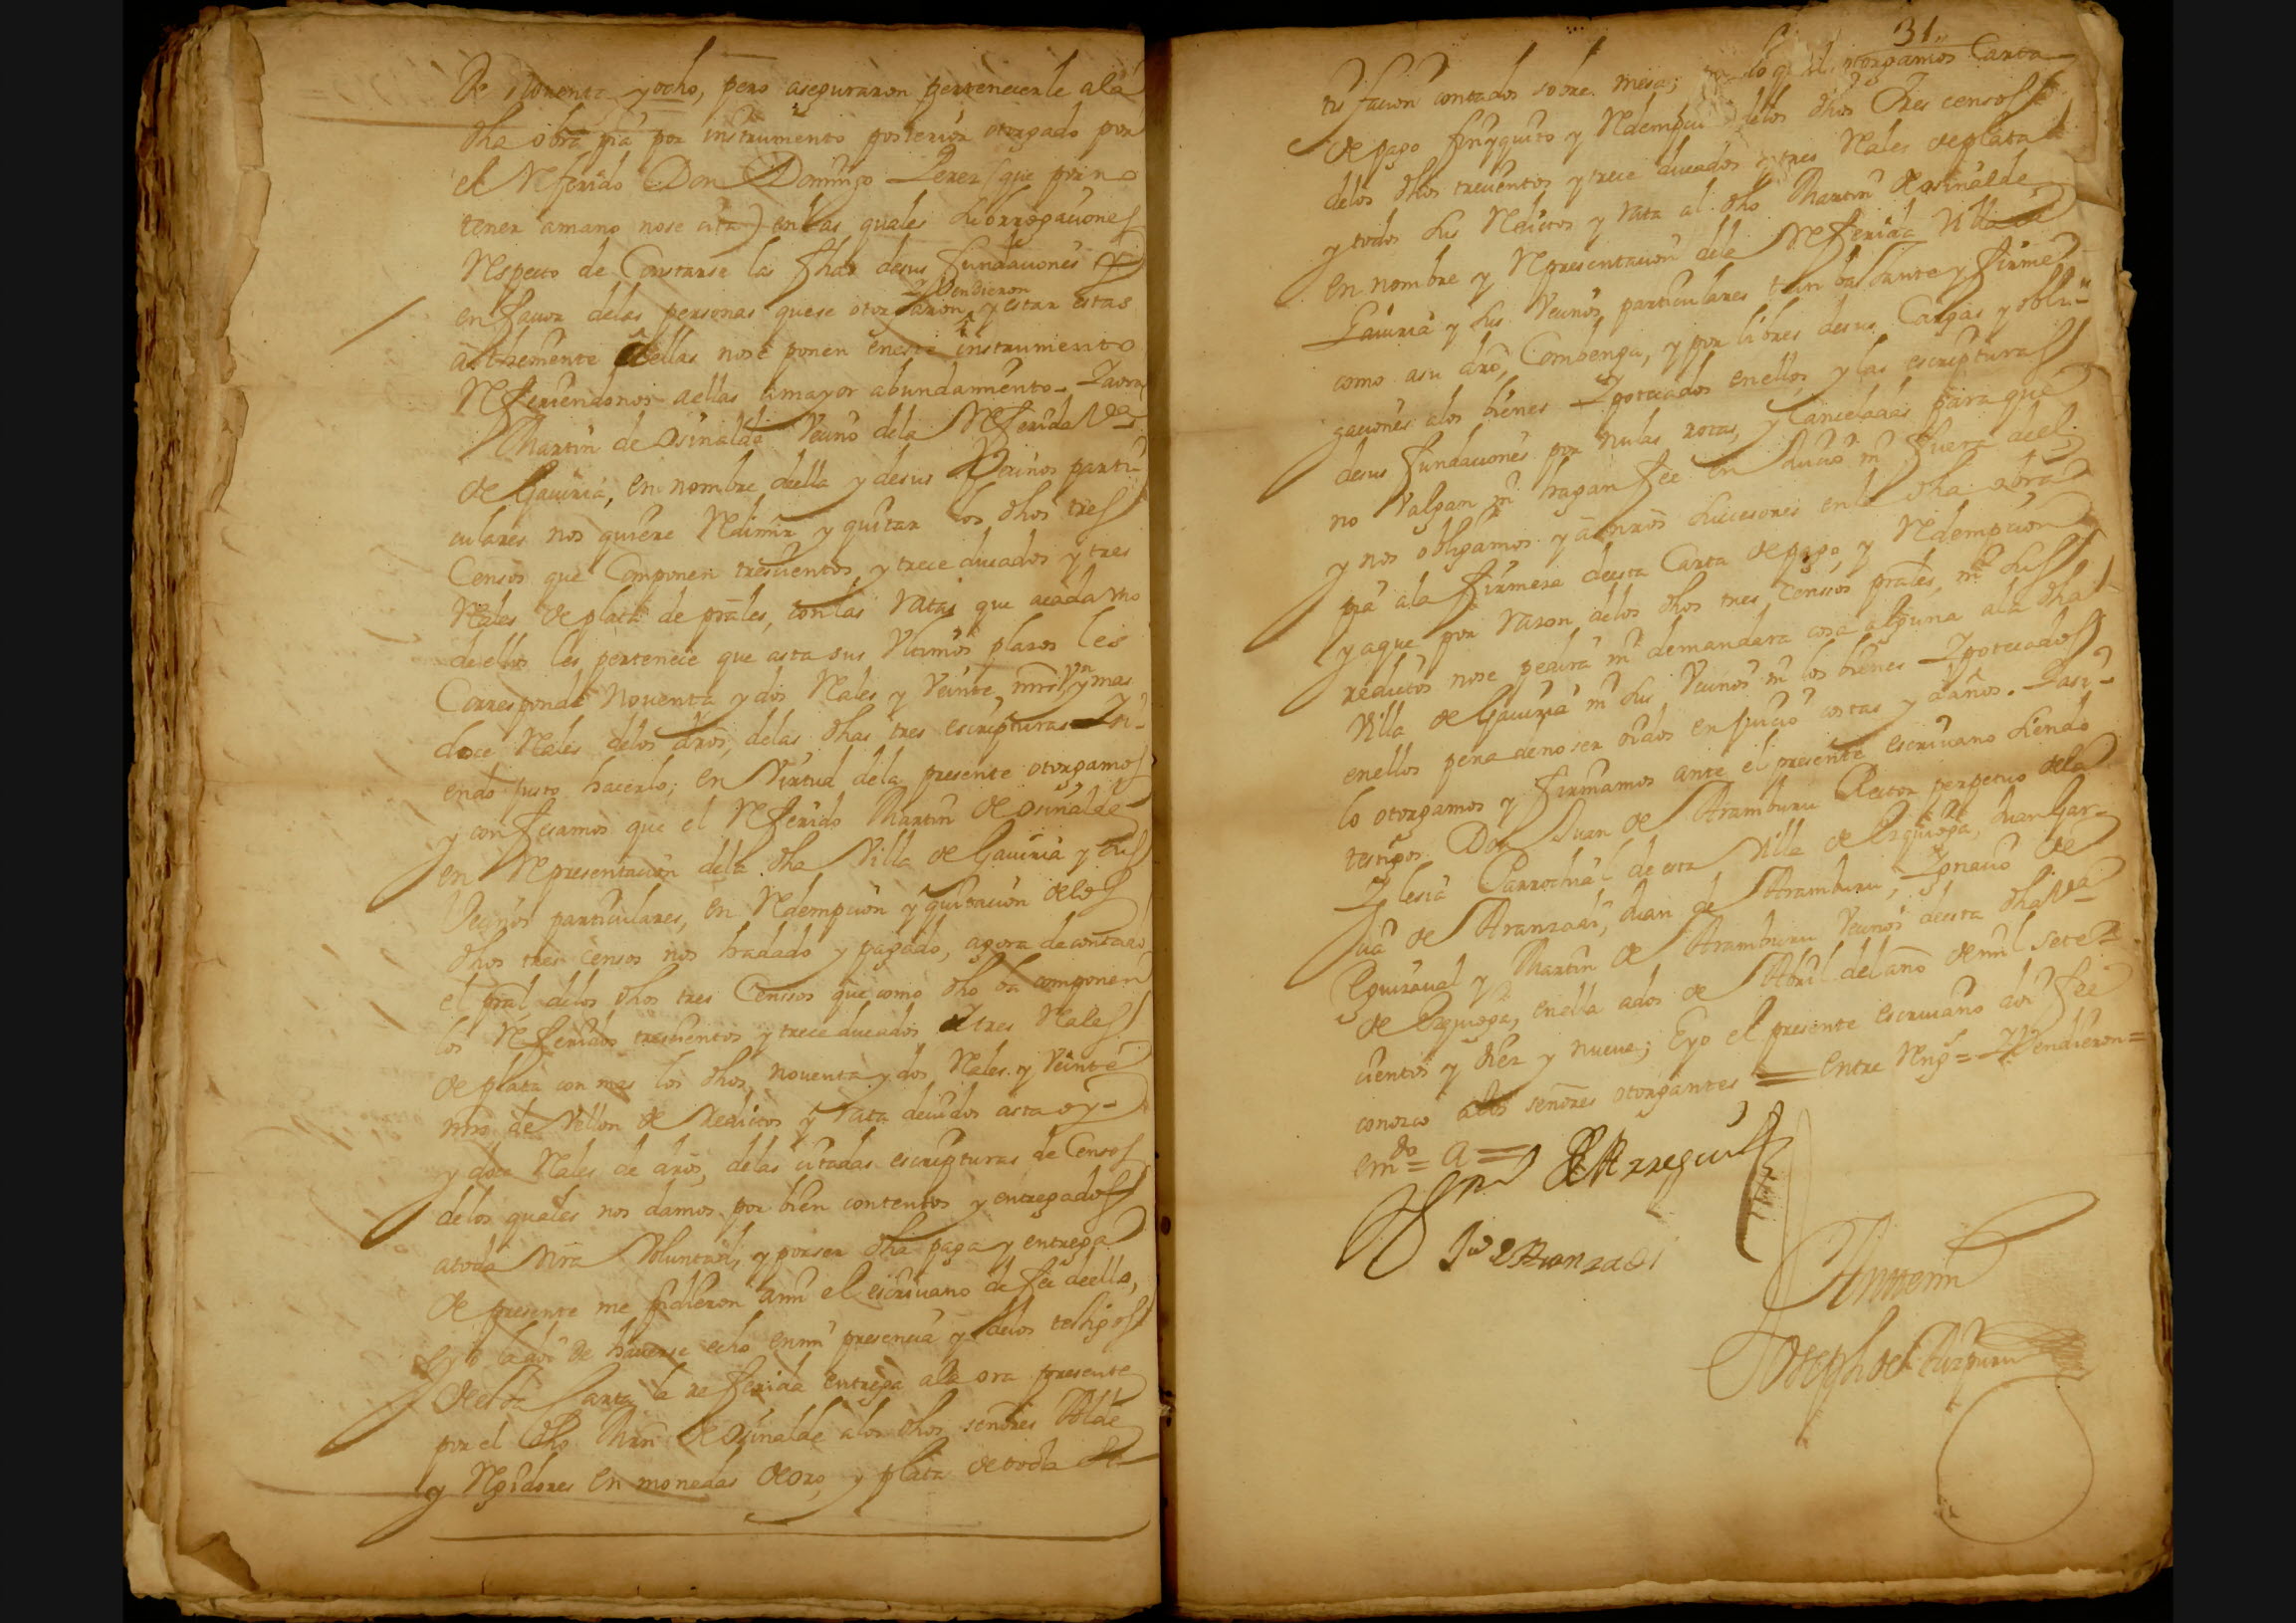 De noventa y ocho, pero aseguraron pertenecerle ala
dha obra pia por instrumento posterior otorgado por
el Referido Don Domingo Perez (que por no
tener amano nose cita) enlas quales dhorrogaciones
Respecto de Constarse las fhas desus fundaciones y
en favor delas personas quese otorgaron, y estar estas
y Vendieron
dellas nose ponen eneste instrumento
Refiriendonos aellas amayor abundamiento. Y aora
Martin de Osinalde Vecino dela Referida Vª
de Gaviria, en nombre della y desus Vecinos parti-
culares nos quiere Redimir y quitar los dhos tres
Censos que Componen trescientos y trece ducados y tres
Reales de plata de prales, con las Ratas que acada vno
dellos les pertenece que asta sus Vltimos plazos les
Corresponde noventa y dos Reales y Veinte mrs Vn y mas
doce Reales delos dros, delas dhas tres escripturas Y si-
endo justo hacerlo; en Virtud dela presente otorgamos
y confesamos que el Referido Martin de Osinalde
en Representacion dela dha Villa de Gaviria y sus
Vecinos particulares, en Redempcion y quitacion delos
dhos tres censos nos hadado y pagado, agora decontado
el pral delos dhos tres Censos que como dho ba componen
los Referidos trescientos y trece ducados y tres Reales
de plata con mas los dhos noventa y dos Reales y Veinte
mrs de Vellon de Redictos y Rata devidos asta oy
y doce Reales de dros, delas citadas escripturas de Censos
delos quales nos damos por bien contentos y entregados
atoda nra Voluntad, y porser dha paga y entrega
de presente me pidieron ami el escrivano de fee dello,
e yo la doi de haverse echo enmi presencia y delos testigos
desta Carta la referida entrega ala ora presente
por el dho Mrn de Osinalde alos dhos señores Alcde
y Rejidores en monedas de oro, y plata de toda sa-
31
tisfacion contados sobre mesa; por lo qual otorgamos Carta
de pago finyquito y Redempcion delos dhos Tres censos
delos dhos trecientos y trece ducados y tres Reales de plata
y todos sus Reditos y rata al dho Martin de Osinalde
en nombre y Representacion dela Referida Villa de
Gaviria y sus Vecinos particulares tan bastante y firme
como asu dro, Combenga, y por libres desus Cargas y obli-
gaciones alos bienes Ypotecados enellos y las escripturas
desus fundaciones por nulas rotas, y Canceladas para que
no Valgan ni hagan fee en Juicio ni fuera deel;
y nos obligamos y a nros sucesores enla dha obra
pia ala firmeza desta Carta de pago, y Redempcion
y aque por razon delos dhos tres censos prales, ni sus
redictos nose pedira ni demandara cosa alguna ala dha
Villa de Gaviria ni sus Vecinos ni los bienes Ypotecados
enellos pena de no ser oidos en juicio costas y daños. Y asi
lo otorgamos y firmamos ante el presente escrivano siendo
testigos Don Juan de Aramburu Rector perpetuo dela
Yglesia Parrochial de esta Villa de Ezquioga, Juan Gar-
cia de Aranzadi, Juan de Aramburu, Ygnacio de
Eguizaval y Martin de Aramburu Vecinos desta dha Vª
de Ezquioga, enella ados de Abril del año de mil sete-
cientos y diez y nueve; E yo el presente escrivano doi fee
conozco alos señores otorgantes = entre Rengs = Y Vendieron =
emdo = a =
Arregui
Juº Aranzadi
Antemi
Joseph de Aizpuru